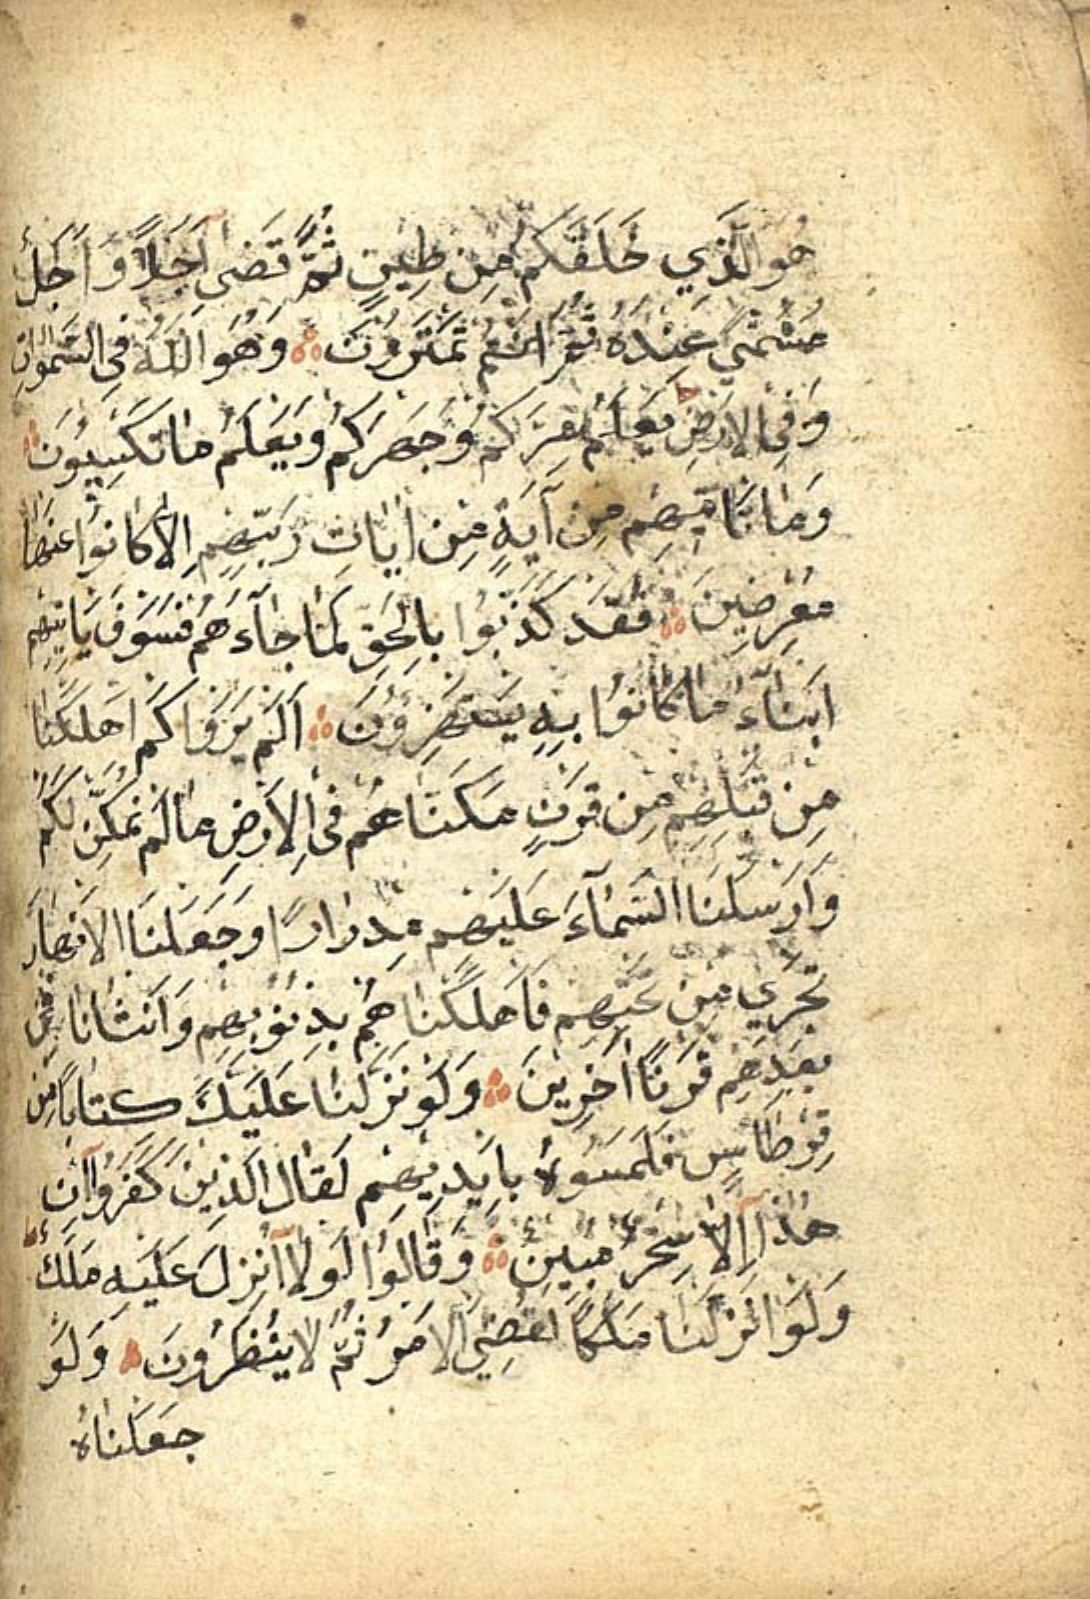 هُوَ الَّذِي خَلَقَكُمْ مِنْ طِينٍ ثُمَّ قَضَى أَجَلًا وَأَجَلٌ
مُسَمًّى عِنْدَهُ ثُمَّ أَنْتُمْ تَمْتَرُونَ وَهُوَ اللَّهُ فِي السَّمٰوَاتِ
وَفِي الْأَرْضِ يَعْلَمُ سِرَّكُمْ وَجَهْرَكُمْ وَيَعْلَمُ مَا تَكْسِبُونَ
وَمَا تَأْتِيهِمْ مِنْ آيَةٍ مِنْ اٰيَاتِ رَبِّهِمْ إِلَّا كَانُوا عَنْهَا
مُعْرِضِينَ فَقَدْ كَذَّبُوا بِالْحَقِّ لَمَّا جَاءَهُمْ فَسَوْفَ يَأْتِيهِمْ
اَنْبَاءُ مَا كَانُوا بِهِ يَسْتَهْزِؤُنَ اَلَمْ يَرَوْا كَمْ اَهْلَكْنَا
مِنْ قَبْلِهِمْ مِنْ قَرْنٍ مَكَّنَّاهُمْ فِي الْأَرْضِ مَا لَمْ نُمَكِّنْ لَكُمْ
وَأَرْسَلْنَا السَّمَآءَ عَلَيْهِمْ مِدْرَارًا وَجَعَلْنَا الْأَنْهَارَ
تَجْرِي مِنْ تَحْتِهِمْ فَأَهْلَكْنَاهُمْ بِذُنُوبِهِمْ وَاَنْشَأْنَا مِنْ
بَعْدِهِمْ قَرْنًا اٰخَرِينَ وَلَوْ نَزَّلْنَا عَلَيْكَ كِتَابًا مِنْ
قِرْطَاسٍ فَلَمَسُوهُ بِأَيْدِيهِمْ لَقَالَ الَّذِينَ كَفَرُوا اِنْ
هٰذَا إِلَّا سِحْرٌ مُبِينٌ وَقَالُوا لَوْلَا أُنْزِلَ عَلَيْهِ مَلَكٌ
وَلَوْ اَنْزَلْنَا مَلَكًا لَقُضِيَ الْأَمْرُ ثُمَّ لَا يُنْظَرُونَ وَلَوْ
جَعَلْنَاهُ